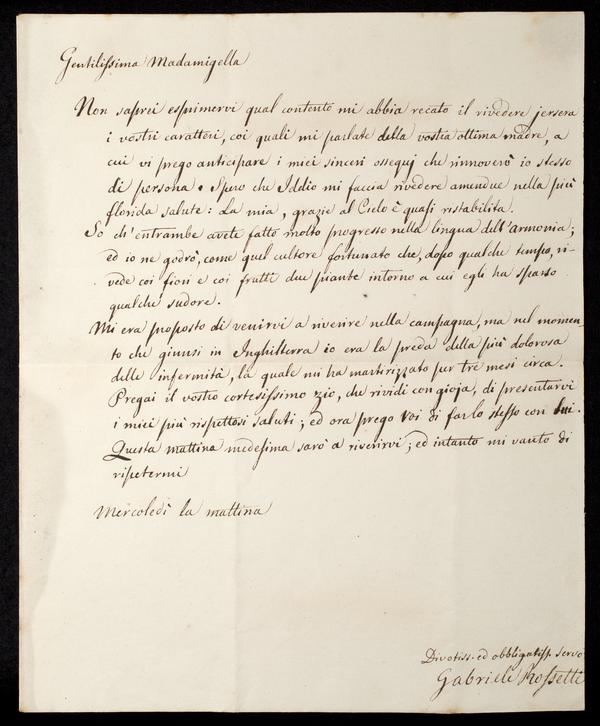 Gentilissima Madamigella
Non saprei esprimervi qual contento mi abbia recato il rivedere jersera
i vostri caratteri, coi quali mi parlate della vostra ottima madre, a
cui vi prego anticipare i miei sinceri ossequj che rinnoverò io stesso
di persona. Spero che Iddio mi faccia rivedere amendue nella più
florida salute: La mia, grazie al Cielo è quasi ristabilita.
So ch'entrambe avete fatto molto progresso nella lingua dell'armonia;
ed io ne godrò, come quel cultore fortunato che, dopo qualche tempo, ri-
vede coi fiori e coi frutti due piante intorno a cui egli ha sparso
qualche sudore.
Mi era proposto di venirvi a riverire nella campagna, ma nel momen-
to che giunsi in Inghilterra io era la preda della più dolorosa
delle infermità, la quale mi ha martirizzato per tre mesi circa.
Pregai il vostro cortesissimo zio, che rividi con gioja, di presentarvi
i miei più rispettosi saluti; ed ora prego voi di far lo stesso con lui.
Questa mattina medesima sarò a riverirvi; ed intanto mi vanto di
ripetermi
Mercoledì la mattina
Divotiss. ed obbligatiss. servo
Gabriele Rossetti